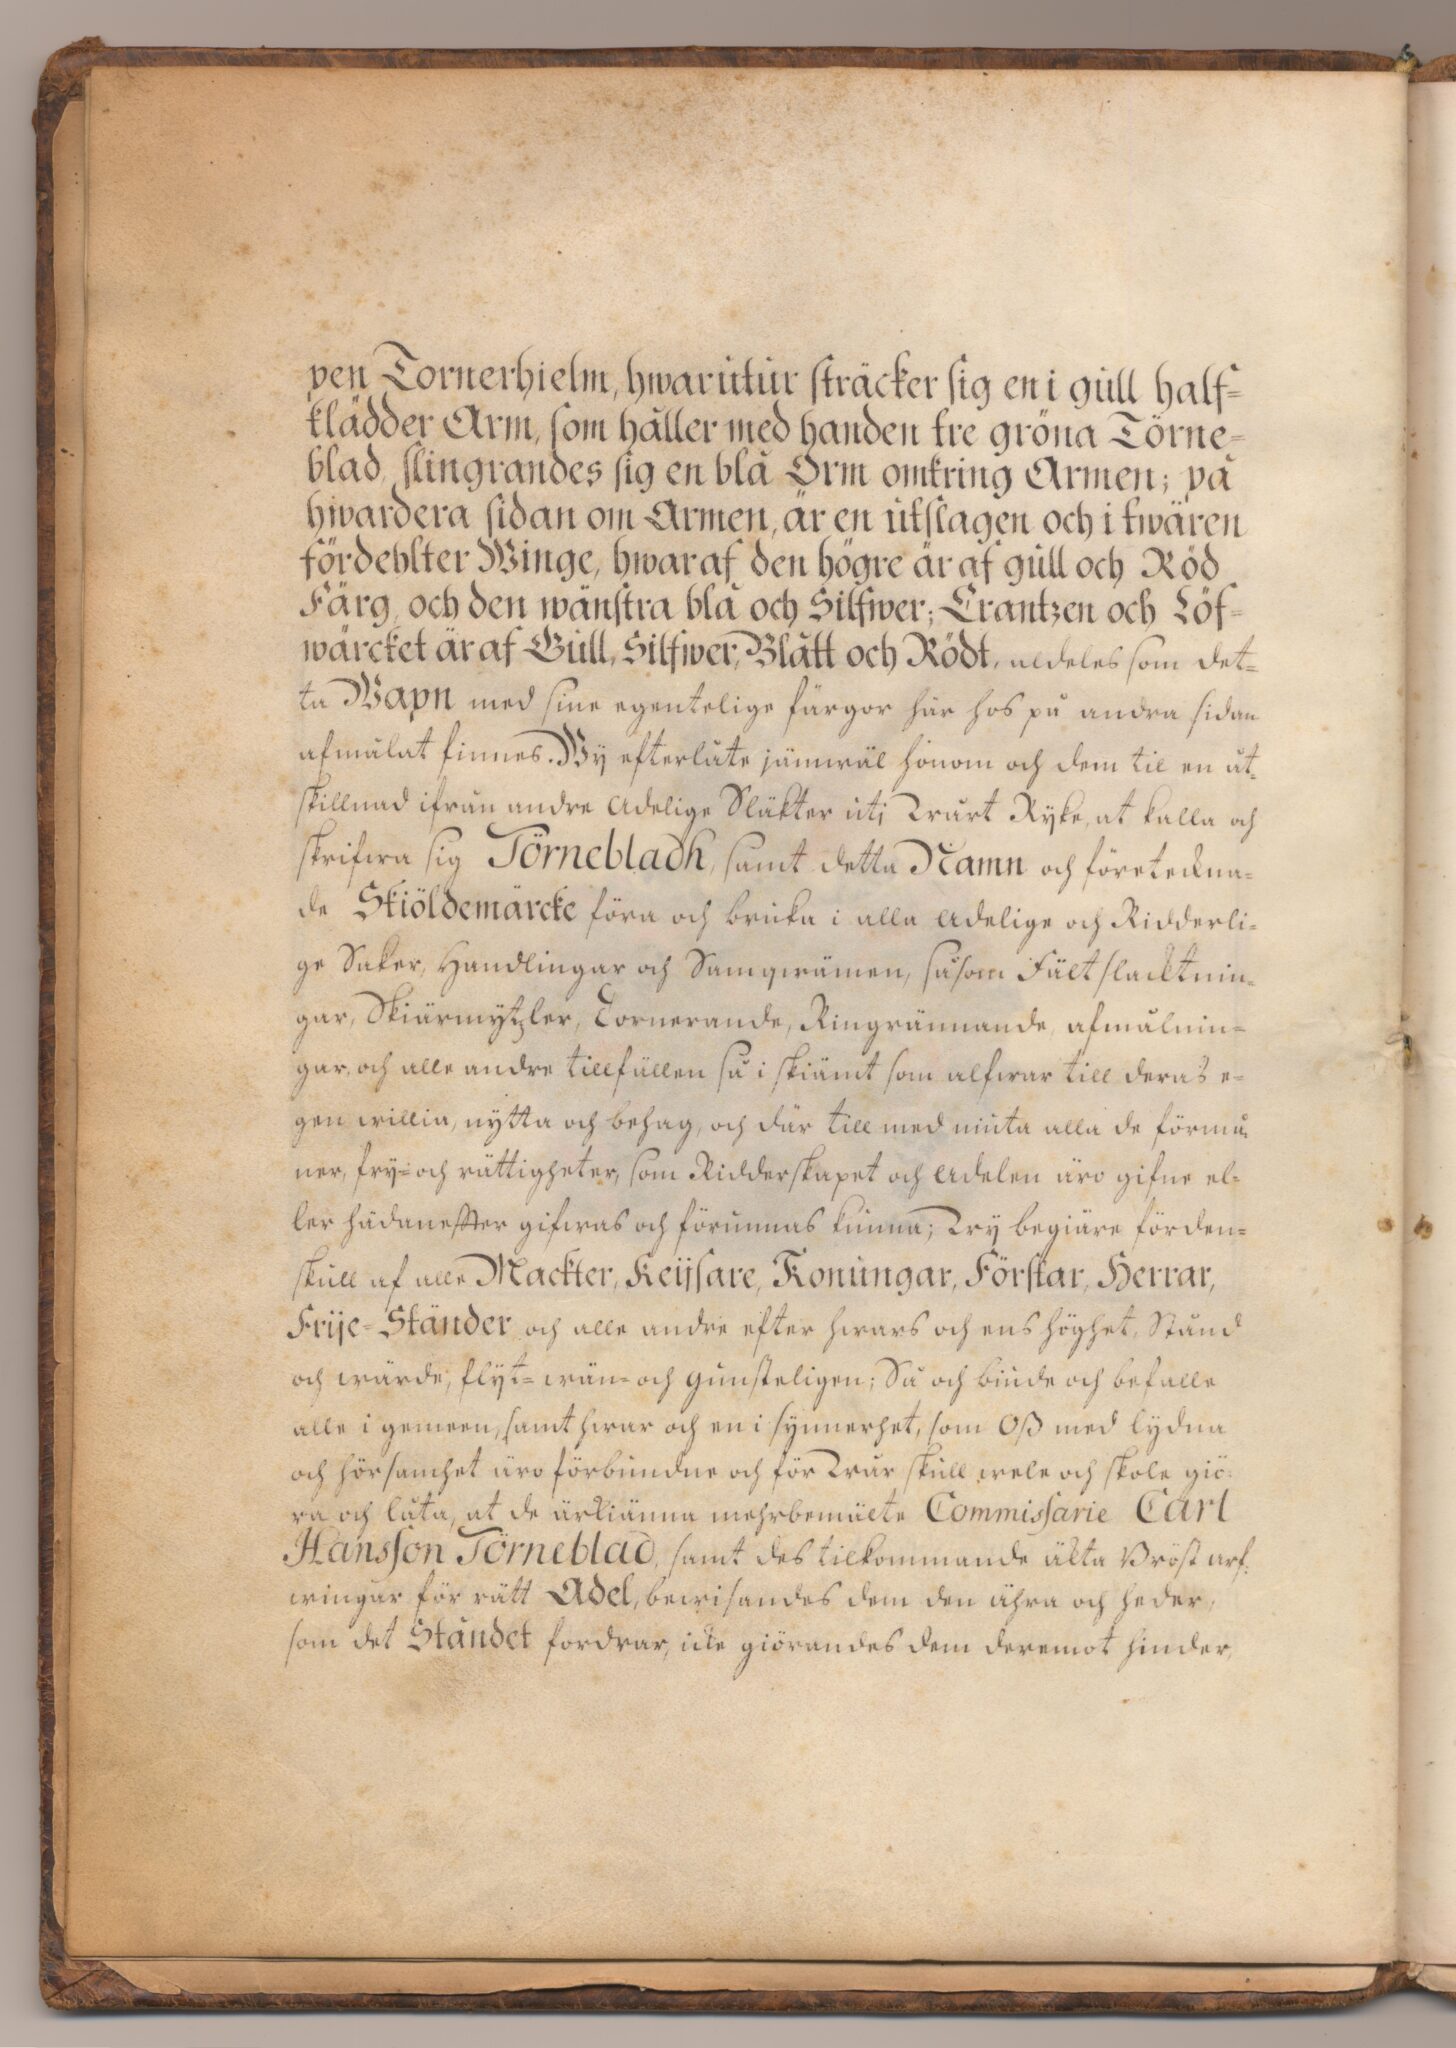 pen Tornerhielm, hwarutur sträcker sig en i gull half=
klädder Arm, som håller med handen tre gröna Törne=
blad, slingrandes sig en blå Orm omkring Armen; på
hwardera sidan om Armen, är en utslagen och i twären
fördehlter Winge, hwaraf den högre är af gull och Röd
Färg, och den wänstra blå och Silfwer; Crantzen och Löf=
wärcket är af Gull, Silfwer, Blått och Rödt, aldeles som det=
ta Wapn med sine egentelige färgor här hos på andra sidan
afmålat finnes. Wy efterlåte jämwäl honom och dem til en ut=
skillnad ifrån andre Adelige Släkter uti Wårt Ryke, at kalla och
skrifwa sig Törnebladh, samt detta Namn och företeckna=
de Skiöldemärcke föra och bruka i alla Adelige och Ridderli=
ge Saker, Handlingar och Samqwämen, såsom Fältslacktnin=
gar, Skiärmytzler, Tornerande, Ringrännande, afmålnin=
gar, och alle andre tillfällen så i skiämt som alfwar till deras e=
gen willia, nytta och behag, och där till med niuta alla de förmå=
ner, fry= och rättigheter, som Ridderskapet och Adelen äro gifne el=
ler hädaneffter gifwas och förunnas kunna; Wy begiäre förden=
skull af alle Mackter, Keijsare, Konungar, Förstar, Herrar,
Frije=Ständer och alle andre efter hwars och ens höghet, Stånd
och wärde, flyt= wän= och gunsteligen; Så och biude och befalle
alle i gemeen, samt hwar och en i synnerhet, som Oß med lydna
och hörsamhet äro förbundne och för Wår skull wele och skole giö=
ra och låta, at de ärkiänna mehrbemälte Commissarie Carl
Hansson Törneblad, samt des tilkommande äkta Bröst arf=
wingar för rätt Adel, bewisandes dem den ähra och heder,
som det Ståndet fordrar, icke giörandes dem deremot hinder,